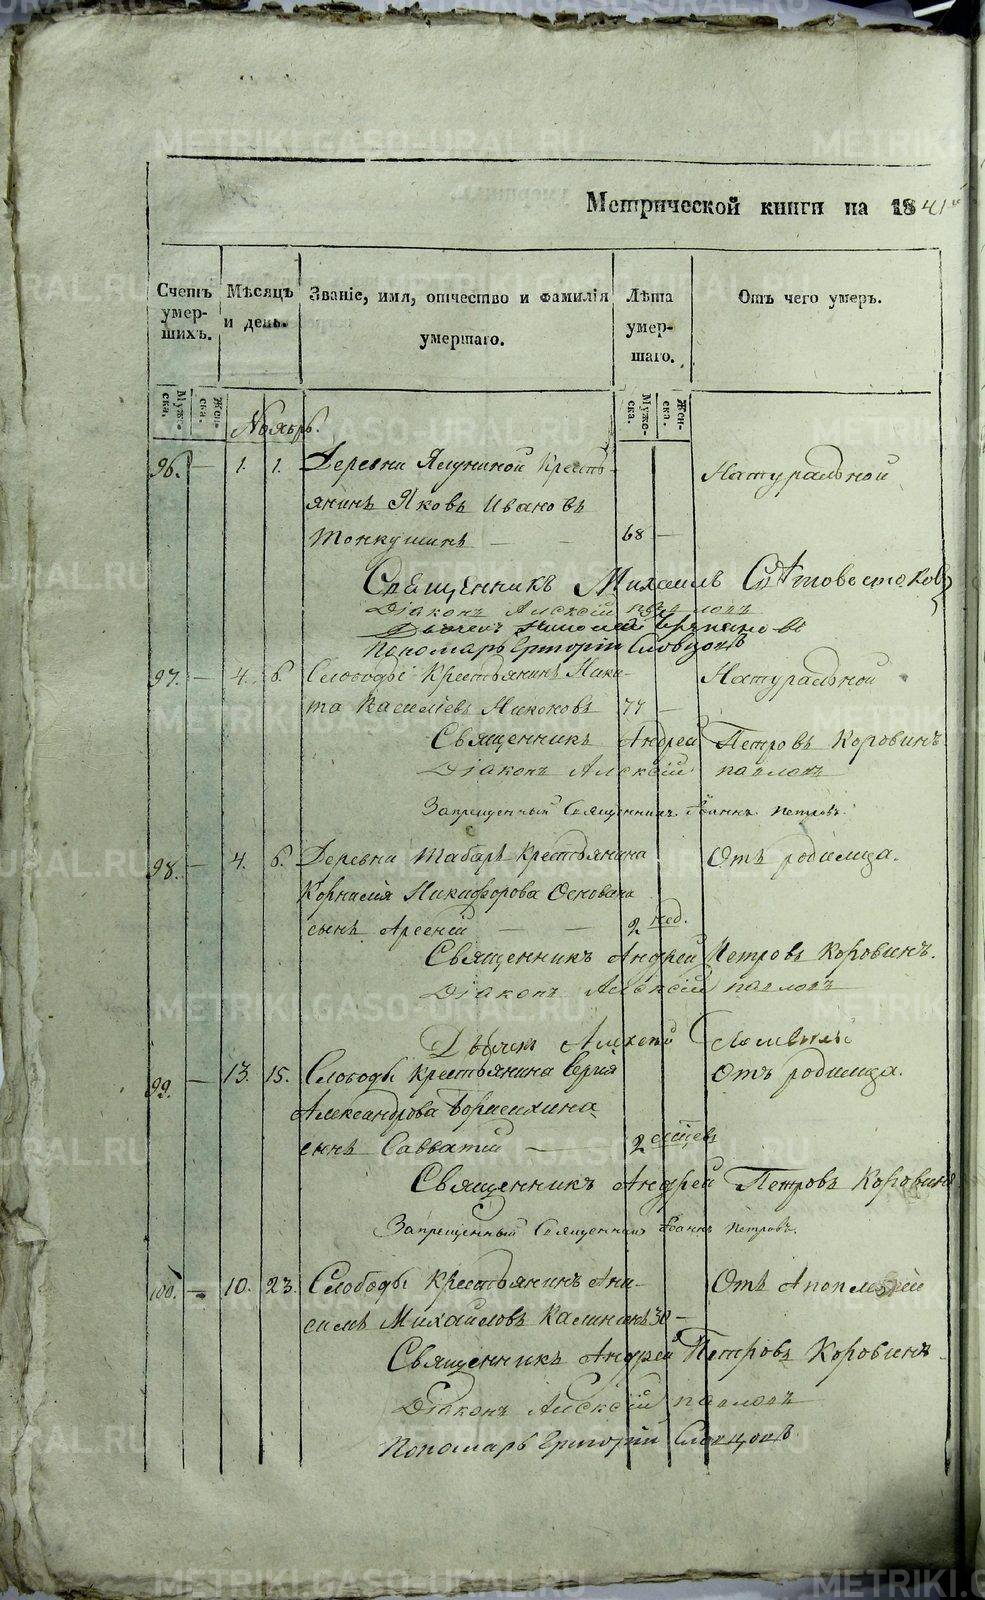 Метрической книги на 1841
Счетъ умершихъ. Мѣсяцъ и день. Званіе, имя, отчество и фамилія умершаго. Лѣта умершаго. Отъ чего умеръ.
Мужеска. Женска. Мужеска. Женска.
Ноябрь.
96. — 1. 1. Деревни Ялуниной Кресть-
янинъ Яковъ Ивановъ Натуральной
Тонкушинъ — — 68 —
Священникъ Михаилъ
Діаконъ Алексій Павловъ
Дьячекъ Николай
Пономарь Григорій Словцовъ
97. — 4. 6. Слободы Крестьянинъ Ники- Натуральной
та Василіевъ Никоновъ 77 —
Священникъ Андрей Петровъ Коровинъ
Діаконъ Алексій Павловъ
Запрещенный Священникъ Іоаннъ Петровъ.
98. — 4. 6. Деревни Табаръ Крестьянина Отъ родимца.
Корнилія Никифорова
сынъ Арсеній — — 2 нед.
Священникъ Андрей Петровъ Коровинъ.
Діаконъ Алексій Павловъ
Дьячекъ Алексій
99. — 13. 15. Слободы Крестьянина Сергія Отъ родимца.
Александрова Борисихина
сынъ Савватій — 2
Священникъ Андрей Петровъ Коровинъ
Запрещенный Священникъ Іоаннъ Петровъ.
100. — 10. 23. Слободы Крестьянинъ Ани- Отъ Апоплексіи
симъ Михайловъ Калининъ 30 —
Священникъ Андрей Петровъ Коровинъ
Діаконъ Алексій Павловъ
Пономарь Григорій Словцовъ
METRIKI.GASO-URAL.RU